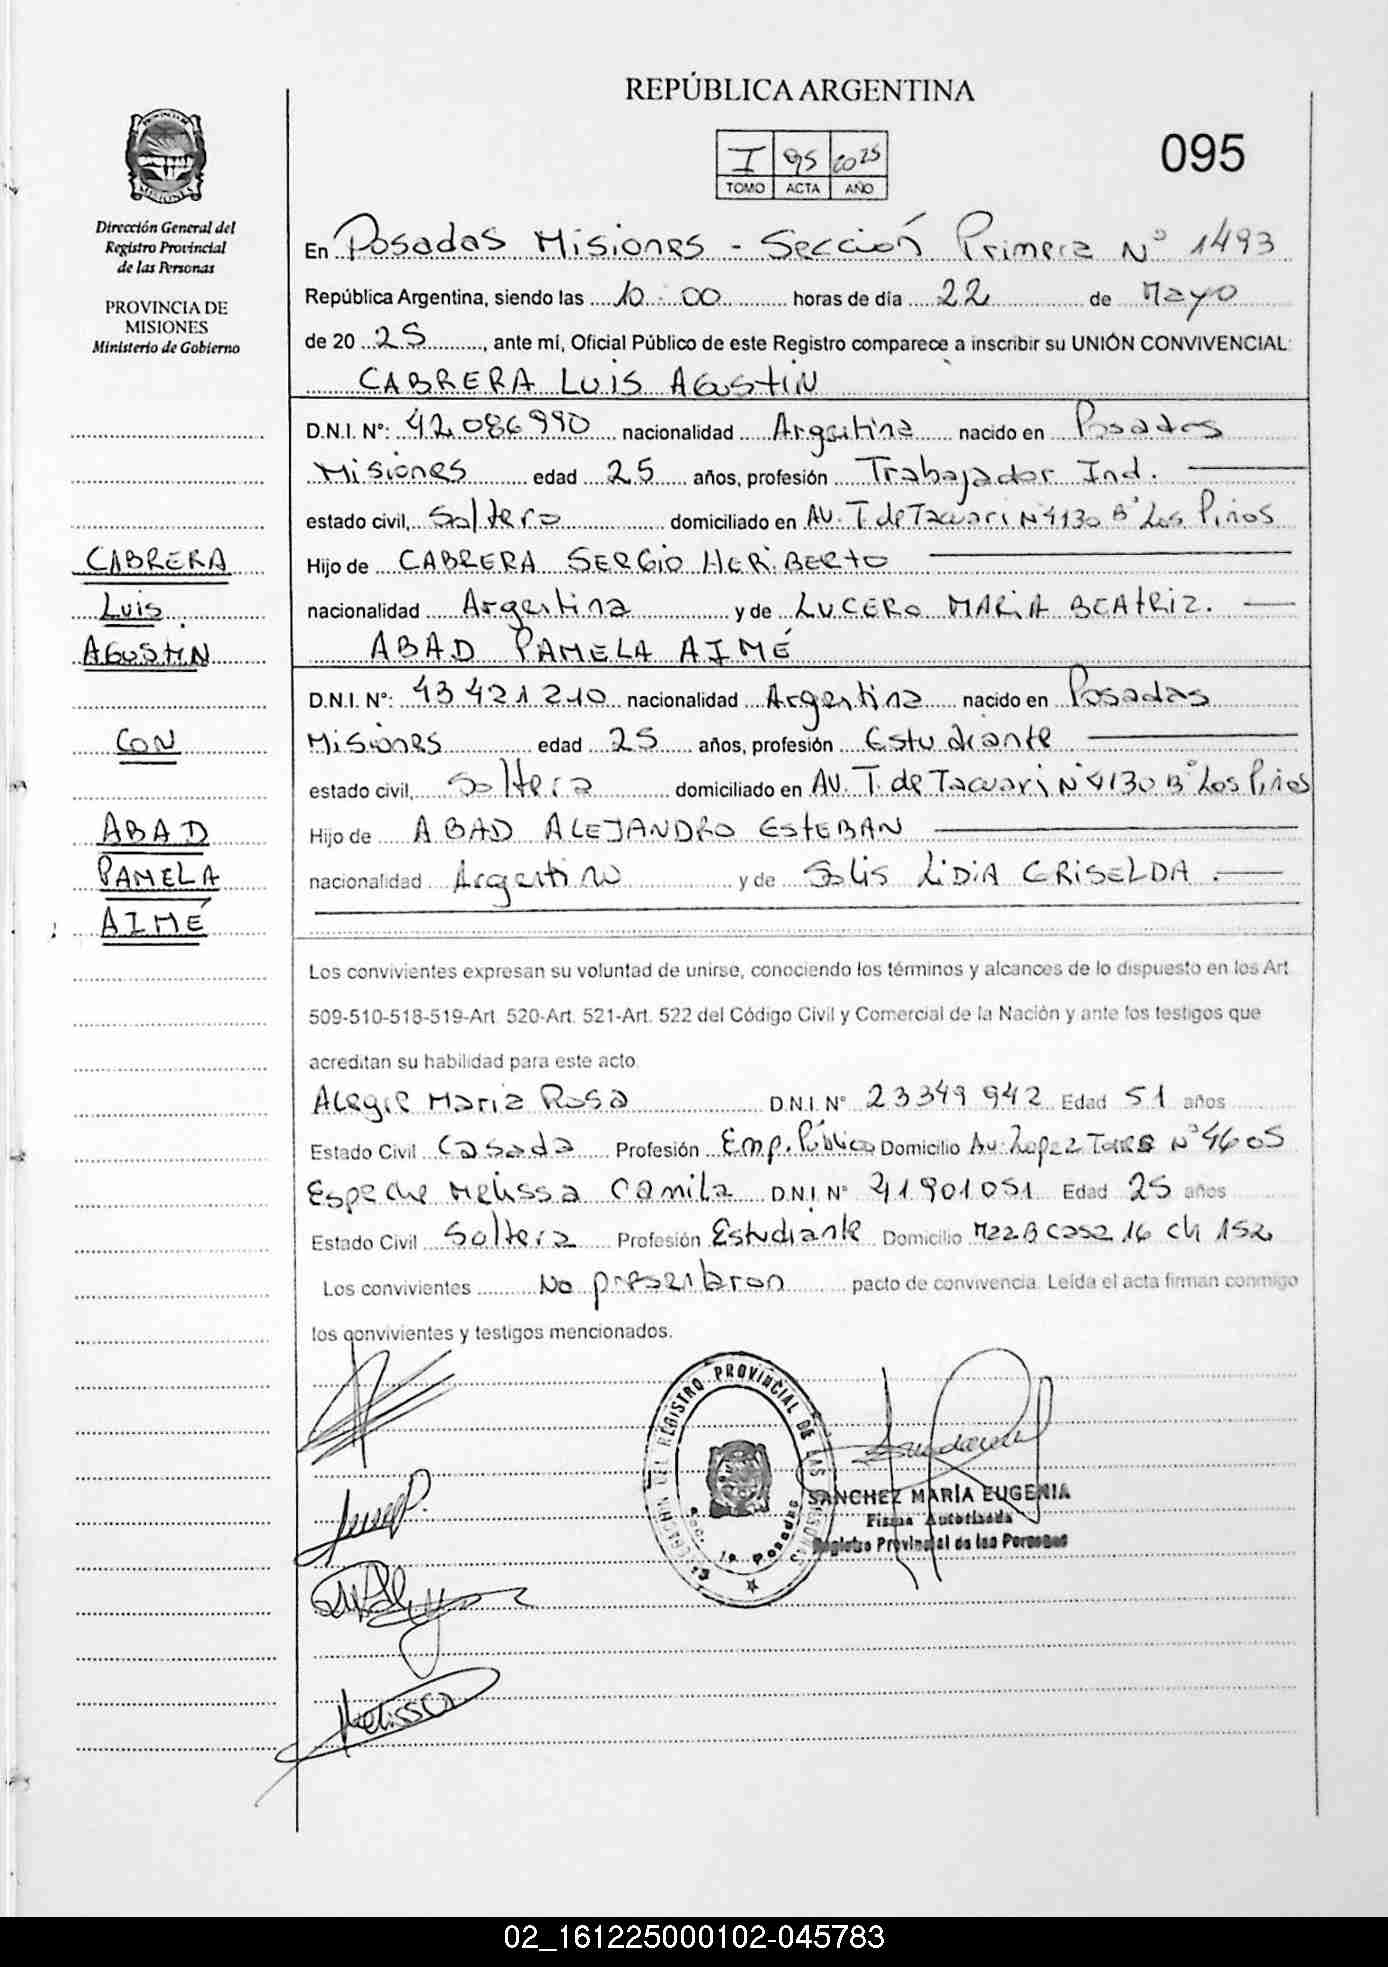 REPÚBLICA ARGENTINA
I 95 2025
TOMO ACTA AÑO
095
PROVINCIA DE
MISIONES
Dirección General del
Registro Provincial
de las Personas
PROVINCIA DE
MISIONES
Ministerio de Gobierno
CABRERA
Luis
AGUSTIN
CON
ABAD
PAMELA
AIMÉ
En Posadas Misiones - Sección Primera N° 1493
República Argentina, siendo las 10:00 horas de día 22 de Mayo
de 20 25, ante mí, Oficial Público de este Registro comparece a inscribir su UNIÓN CONVIVENCIAL:
CABRERA LUIS AGUSTIN
D.N.I. N°: 42.086990 nacionalidad Argentina nacido en Posadas
Misiones edad 25 años, profesión Trabajador Ind.
estado civil, Soltero domiciliado en AV. T de Tacuari N 4130 B° Los Pinos
Hijo de CABRERA SERGIO HERIBERTO
nacionalidad Argentina y de LUCERO MARIA BEATRIZ.
ABAD PAMELA AIMÉ
D.N.I. N°: 43421210 nacionalidad Argentina nacido en Posadas
Misiones edad 25 años, profesión Estudiante
estado civil, Soltera domiciliado en AV. T. de Tacuari N° 4130 B° Los Pinos
Hijo de ABAD ALEJANDRO ESTEBAN
nacionalidad Argentino y de Solis LIDIA GRISELDA.
Los convivientes expresan su voluntad de unirse, conociendo los términos y alcances de lo dispuesto en los Art
509-510-518-519-Art. 520-Art. 521-Art. 522 del Código Civil y Comercial de la Nación y ante los testigos que
acreditan su habilidad para este acto.
Alegre Maria Rosa D.N.I. N° 23349942 Edad 51 años
Estado Civil Casada Profesión Emp. Público Domicilio Av. Lopez Torres N° 4605
Espeche Melissa Camila D.N.I. N° 41901051 Edad 25 años
Estado Civil Soltera Profesión Estudiante Domicilio Mzz B casa 16 ch 152
Los convivientes No pacto de convivencia. Leída el acta firman conmigo
los convivientes y testigos mencionados.
DEL REGISTRO PROVINCIAL DE LAS PERSONAS
Sec. 1a. Posadas
SANCHEZ MARÍA EUGENIA
Firma Autorizada
Registro Provincial de las Personas
Melissa
02_161225000102-045783